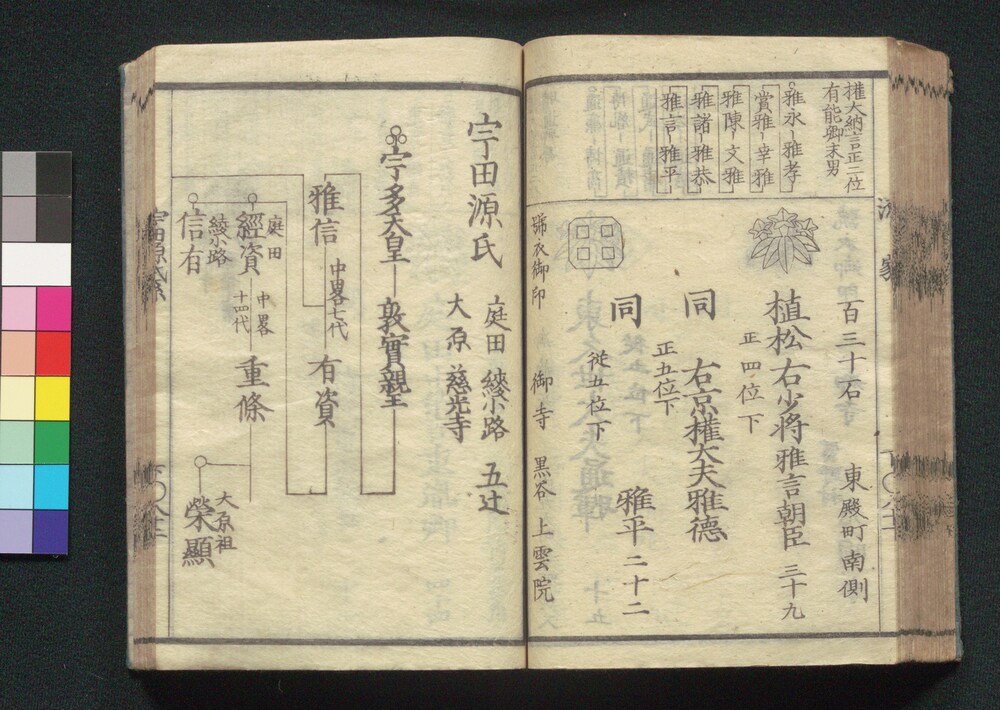 權大納言正二位
有能卿末男
雅永―雅孝
賞雅―幸雅
雅陳―文雅
雅諸―雅恭
雅言―雅平
百三十石 東殿町南側
植松右少将雅言朝臣 三十九
正四位下
同 右京權大夫雅德
正五位下
同 雅平 二十二
從五位下
號衣御印 御寺 黒谷 上雲院
宇田源氏
庭田 綾小路 五辻
大原 慈光寺
宇多天皇―敦實親王
雅信 中畧七代 有資
庭田
經資 中畧十四代 重條
綾小路
信有
大原祖
榮顯
宇田源氏系